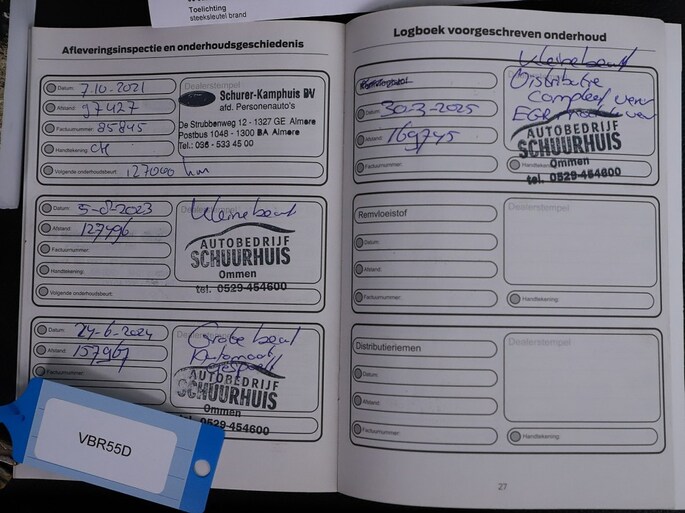 Toelichting
steeksleutel brand
Afleveringsinspectie en onderhoudsgeschiedenis
Datum: 7.10.2021
Afstand: 97427
Factuurnummer: 85845
Handtekening:
Volgende onderhoudsbeurt: 127000 km
Dealerstempel
Schurer-Kamphuis BV
afd. Personenauto's
De Strubbenweg 12 - 1327 GE Almere
Postbus 1048 - 1300 BA Almere
Tel.: 036 - 533 45 00
Datum: 5-8-2023
Afstand: 127496
Factuurnummer:
Handtekening:
Volgende onderhoudsbeurt:
Kleine beurt
AUTOBEDRIJF
SCHUURHUIS
Ommen
tel. 0529-454600
Datum: 24-6-2024
Afstand: 157967
Factuurnummer:
Grote beurt
Automaat
gespoeld
AUTOBEDRIJF
SCHUURHUIS
Ommen
tel. 0529-454600
VBR55D
Logboek voorgeschreven onderhoud
Datum: 30-3-2025
Afstand: 169745
Factuurnummer:
Kleine beurt
Distributie
compleet verv
EGR
AUTOBEDRIJF
SCHUURHUIS
Handtekening:
Ommen
tel. 0529-454600
Remvloeistof
Datum:
Afstand:
Factuurnummer:
Dealerstempel
Handtekening:
Distributieriemen
Datum:
Afstand:
Factuurnummer:
Dealerstempel
Handtekening:
27